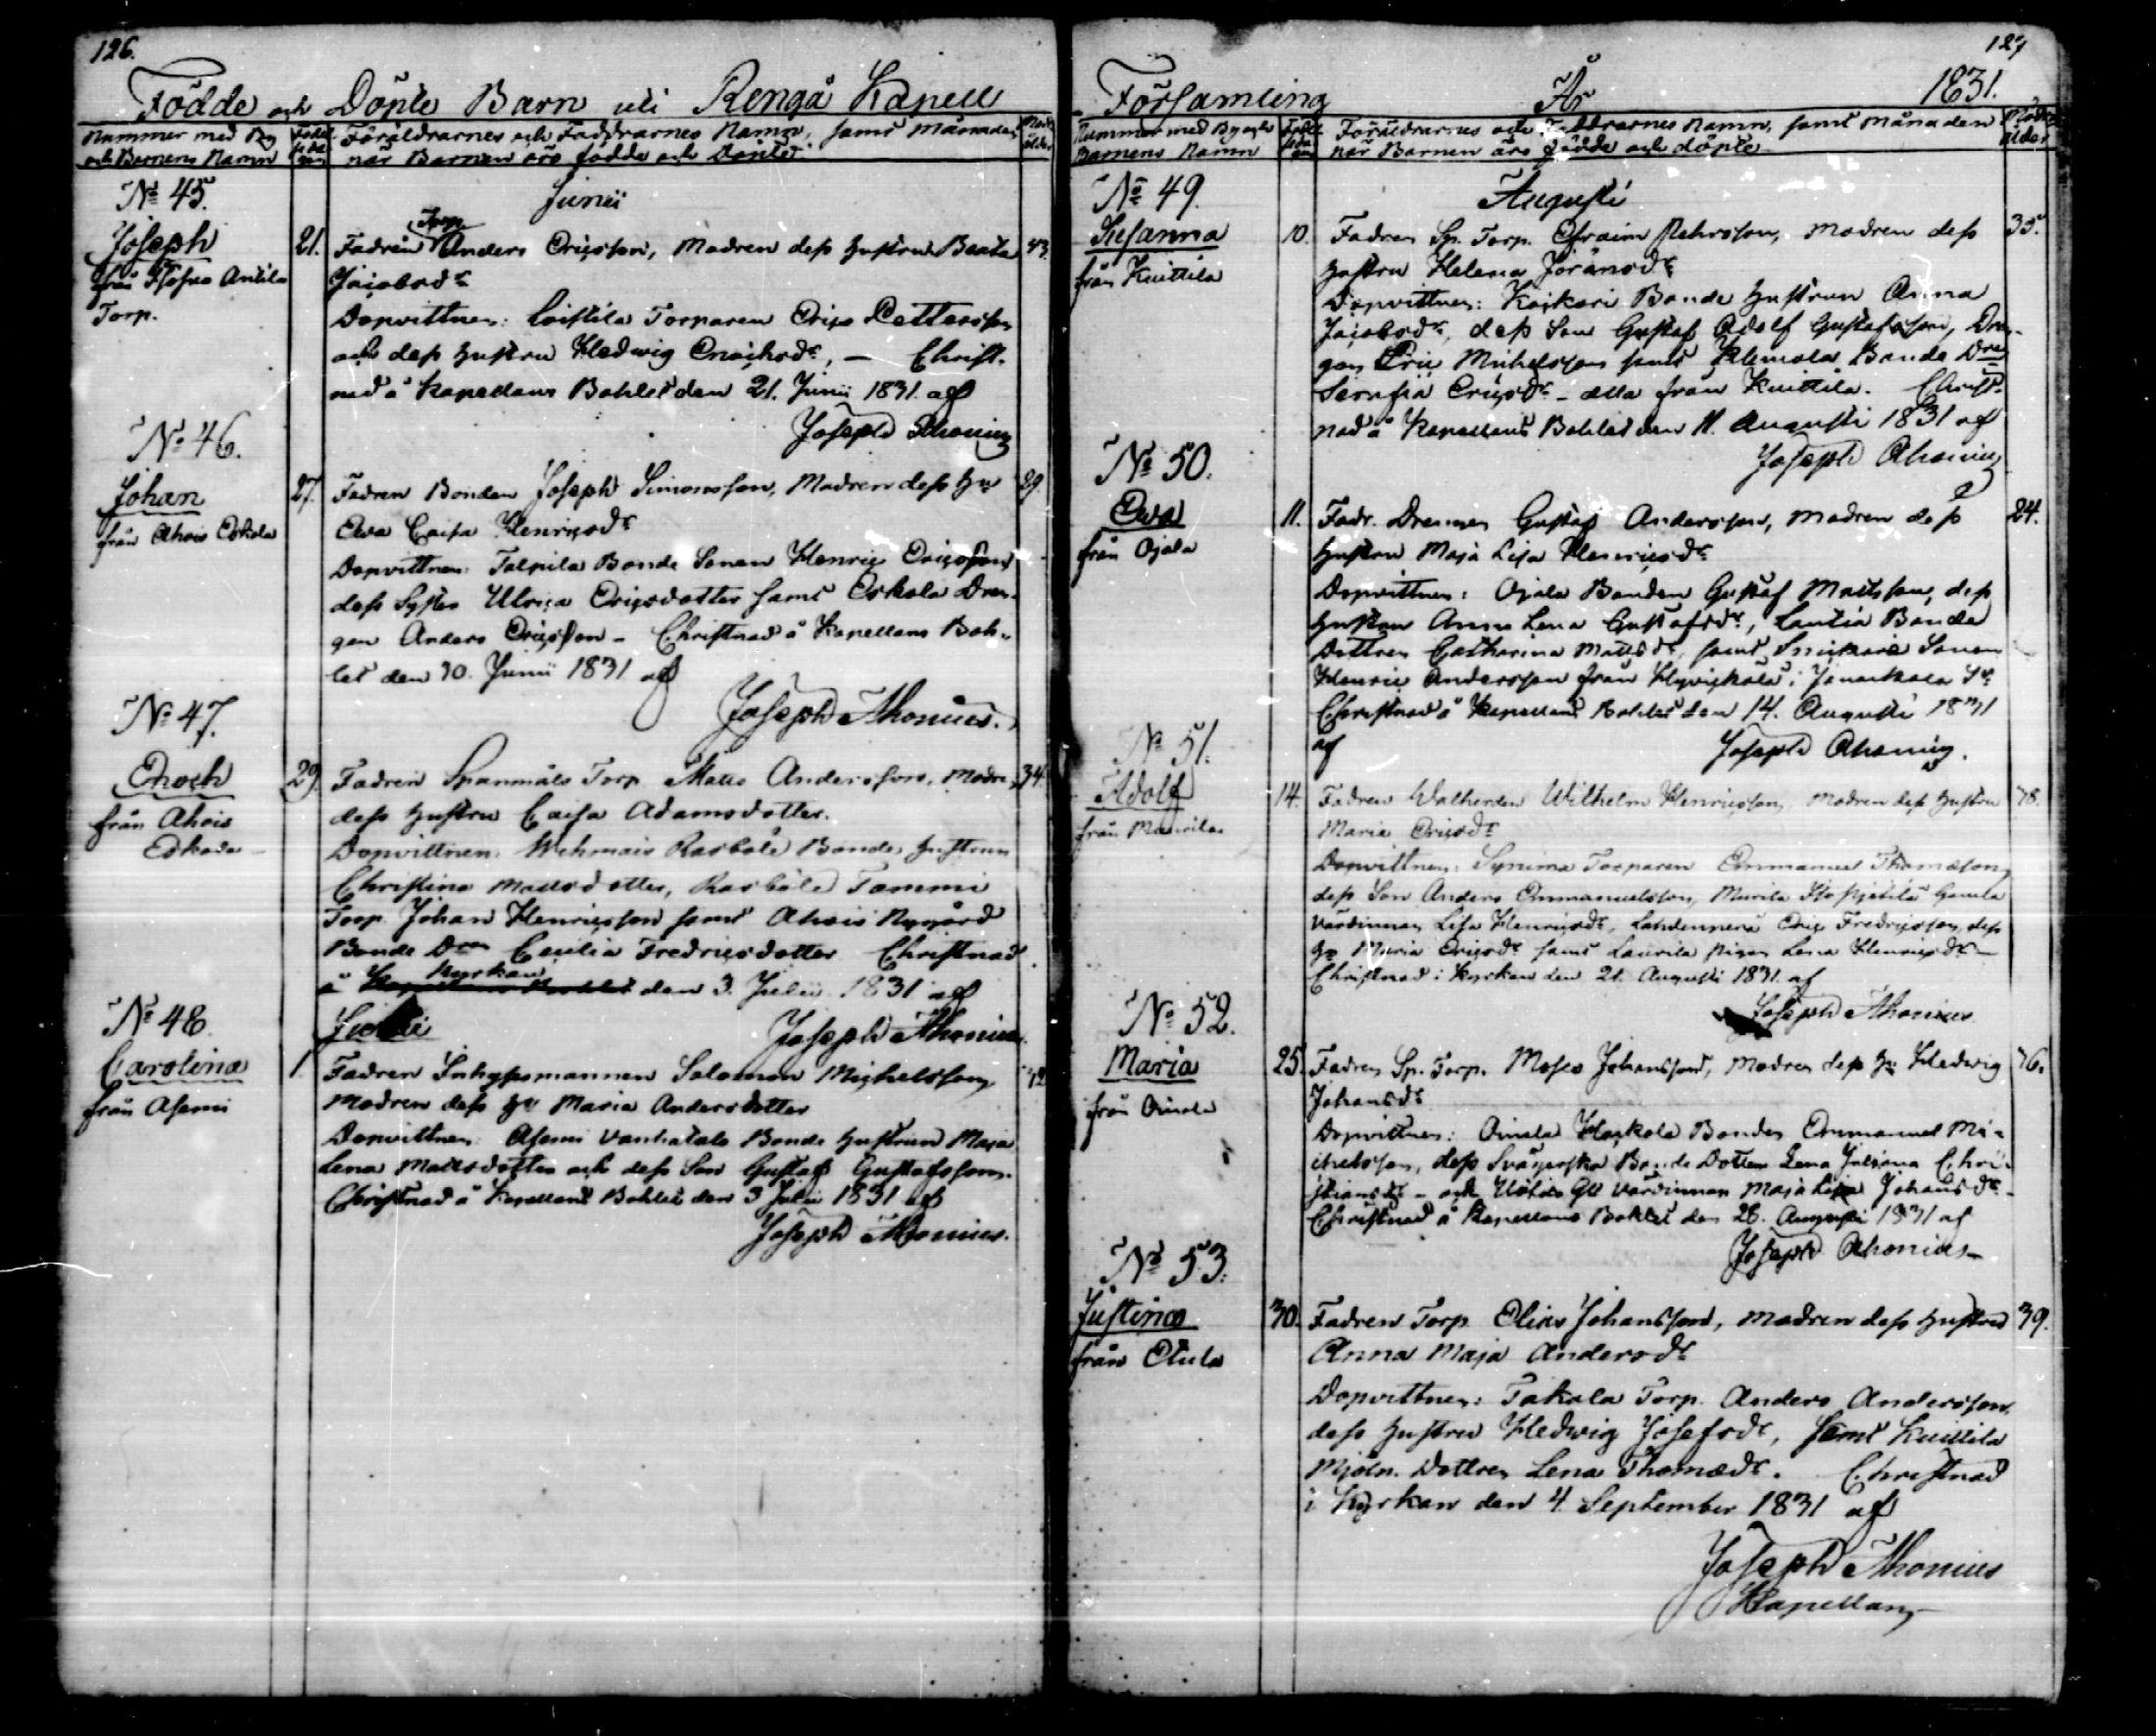 126.
Födde och Döpte Barn uti Rengå Kapell
Nummer med By och Barnens Namn
Föräldrarnes och Faddrarnes Namn, samt Månaden när Barnen äro födde och Döpte.
Junii
No 45.
Joseph
Torp.
21. Fadren Torp Anders Ericsson, Modren dess hustru Beata 43.
Jacobsdr
Dopvittnen: Torparen Eric Pettersson
och dess hustru Hedwig Enochsdr, — Christ-
nad å Kapellans Bohlet den 21. Junii 1831 af
Joseph Ahonius
No 46.
Johan
från Ahois Eskola
27. Fadren Bonden Joseph Simonsson, Modren dess hu 29
Eva Caisa Henricsdr
Dopvittnen: Talpila Bonde Sonen Henric Ericsson
dess Syster Ulrica Ericsdotter samt Eskola Dren-
gen Anders Ericsson – Christnad å Kapellans Boh-
let den 30. Junii 1831 af
Joseph Ahonius.
No 47.
Enoch
från Ahois
29. Fadren Spanmåls Torp. Matts Andersson, Modren 34.
dess hustru Caisa Adamsdotter.
Dopvittnen. Bonde hustrun
Christina Mattsdotter, Tammi
Torp. Johan Henricsson samt Ahois Nygård
Bonde Dren Cecilia Fredricsdotter Christnad
Kyrkan
å Kapellans Bohlet den 3. Julii 1831 af
Joseph Ahonius.
Julii
No 48.
Carolina
från Asemi
1. Fadren Inhysesmannen Salomon Michelsson,
Modren dess hu Maria Andersdotter
Dopvittnen: Asemi Vanhatalo Bonde hustrun Maja
Lena Mattsdotter och dess Son Gustaf Gustafsson.
Christnad å Kapellans Bohlet den 3 Julii 1831 af
Joseph Ahonius.
127
Församling År 1831.
Nummer med By och Barnens Namn
Föräldrarnes och Faddrarnes Namn, samt månaden när Barnen äro födde och döpte
Augusti
No 49.
Susanna
från Knittilä
10. Fadren Sp. Torp. Efraim, Modren dess 35.
hustru Helena Göransdr
Dopvittnen: Bonde hustrun Anna
Jacobsdr, dess Son Gustaf Adolf Gustafsson, Dren-
gen Eric Michelsson samt Klemola Bonde Dren
Serafia Ericsdr – alla från Knittilä. Christ-
nad å Kapellans Bohlet den 11. Augusti 1831 af
Joseph Ahonius
No 50.
Eva
från Ojala
11. Fadr. Drengen Gustaf Andersson, Modren dess 24.
hustru Maja Lisa Henricsdr
Dopvittnen: Ojala Bonden Gustaf Mattsson, dess
hustru Anna Lena Gustafsdr, Bonde
Dottren Catharina Mattsdr, samt Sonen
Henric Andersson från
Christnad å Kapellans Bohlet den 14. Augusti 1831
af
Joseph Ahonius.
No 51.
Adolf
från Maurila
14. Fadren Wilhelm Henricsson, Modren dess hustru
Maria Ericsdr
Dopvittnen: Torparen Emmanuel Thomasson,
dess Son Anders Emmanuelsson, Gamla
Värdinnan Lisa Henricsdr, Eric Fredricsson, dess
hu Maria Ericsdr samt Laurila pigan Lena Henricsdr –
Christnad i Kyrkan den 21. Augusti 1831. af
Joseph Ahonius
No 52.
Maria
25. Fadren Sp. Torp. Moses Johansson, Modren dess hu Hedwig
Johansdr
Dopvittnen: Bonden Emmanuel Mi-
chelsson, dess Svägerska Bonde Dotter Lena Juliana Chri-
stiansdr – och Värdinnan Maja Lisa Johansdr –
Christnad å Kapellans Bohlet den 28. Augusti 1831 af
Joseph Ahonius
No 53.
Justina
30. Fadren Torp. Elias Johansson, Modren dess hustru 39.
Anna Maja Andersdr
Dopvittnen: Takala Torp. Anders Andersson,
dess hustru Hedwig Josefsdr, samt Knittilä
Mjöln. Dottren Lena Thomædr. Christnad
i Kyrkan den 4. September 1831 af
Joseph Ahonius
Kapellan